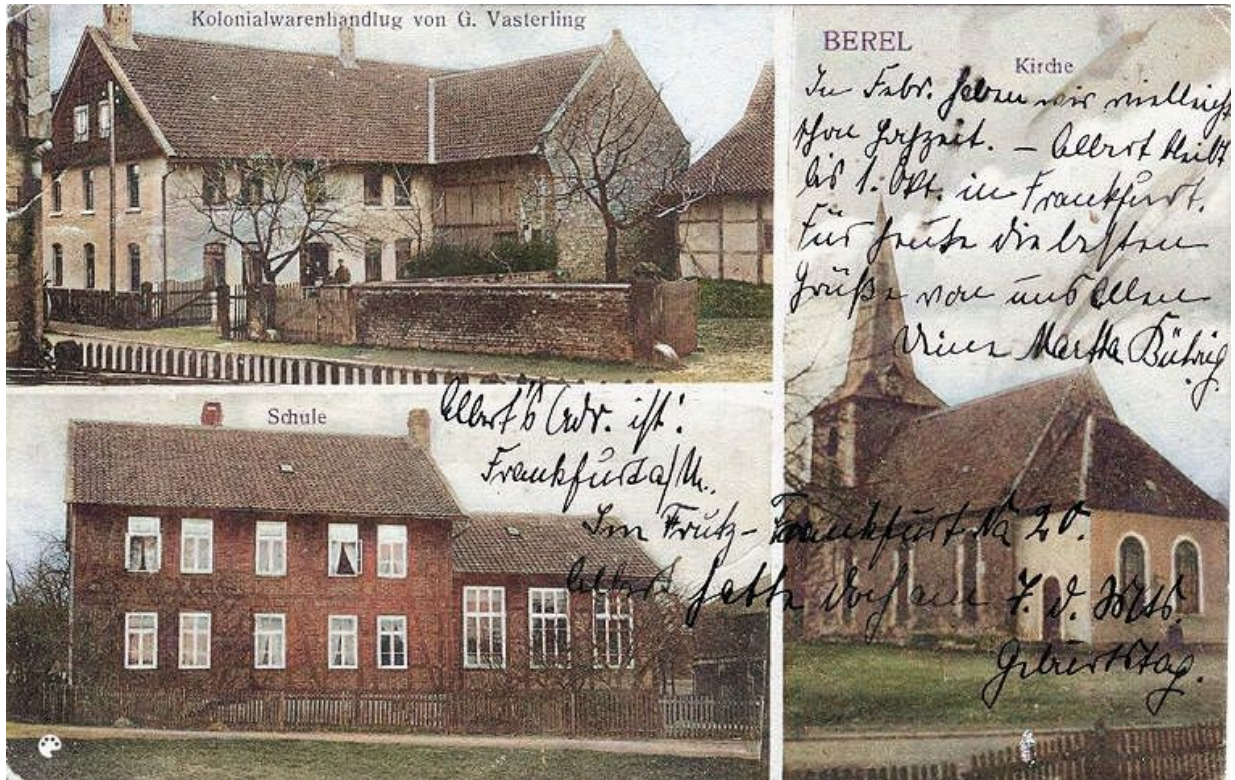 Kolonialwarenhandlug von G. Vasterling
BEREL
Kirche
In Febr. haben wir vielleicht
schon Hochzeit. – Albert bleibt
bis 1. Okt. in Frankfurt.
Für heute die besten
Grüße von uns Allen
Martha Bührig
Schule
Albert's Adr. ist:
Frankfurt a/M.
Im Trutz-Frankfurt No 20.
Albert hatte doch am 7. d. Mts.
Geburtstag.